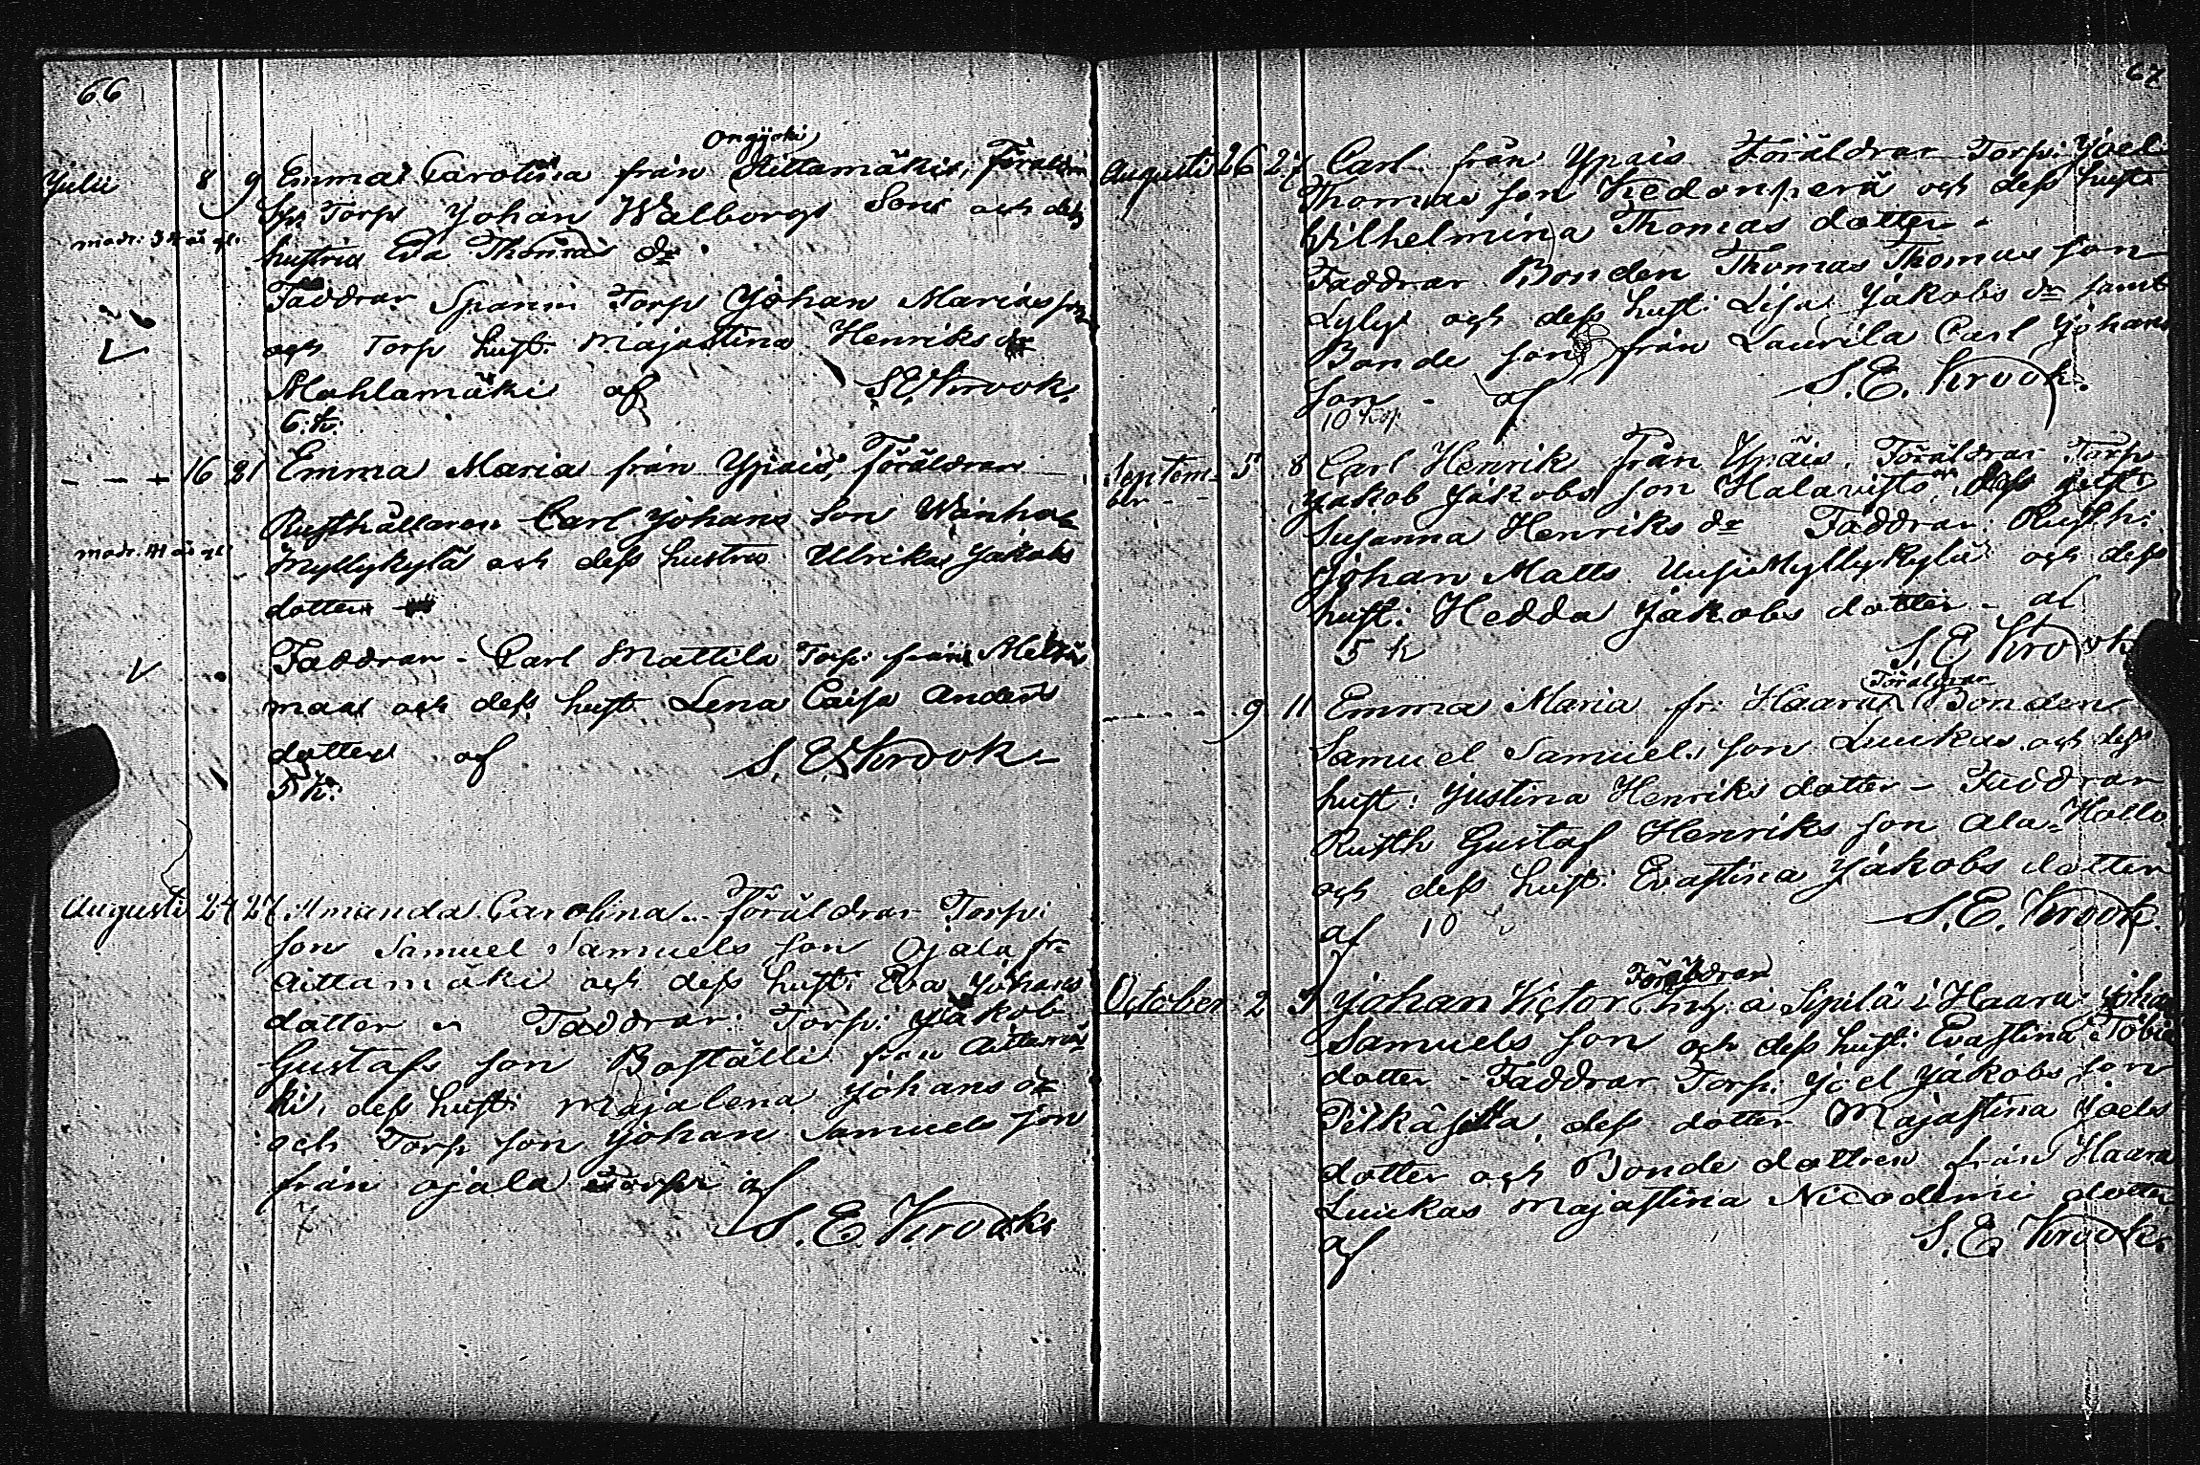 66
Ongijoki
Julii 8 9 Emma Carolina från Aittamäki, Föräldrar
Torp Johan Walborgs Son och dess
modr: 3 år gl.
hustru Eva Thomas dr
Faddrar Spanni Torp Johan Mariasson
och Torp hust. Majastina Henriks dr
Mahlamäki af S.E. Krook.
6. k:
- - - 16 21 Emma Maria från Ypäis, Föräldrar
Rusthållaren Carl Johans Son Wanha
modr. 41 år gl:
Myllykylä och dess hustru Ulrika Jakobs
dotter
Faddrar - Carl Mattila Torp: från
maa och dess hust Lena Caisa Anders
dotter af S. E. Krook
5 k:
Augusti 24 27 Amanda Carolina.. Föräldrar Torp:
son Samuel Samuels son Ojala fr
Aittamäki och dess hust: Eva Johans
dotter - Faddrar: Torp: Jakob
Gustafs son Boställi från Aittamä
ki, dess hust: Majalena Johans dr
och Torp son Johan Samuels son
från Ojala af
S. E. Krook
67
Augusti 26 27 Carl från Ypäis Föräldrar Torp: Joel
Thomas son Kedonperä och dess hust:
Wilhelmina Thomas dotter -
Faddrar Bonden Thomas Thomas son
Lyly och dess hust: Lisa Jakobs dr samt
Bonde son från Laurila Carl Johans
son - af S. E. Krook.
10 kop
Septem- 5 8 Carl Henrik från Ypäis, Föräldrar Torp
ber - - Jakob Jakobs son Halavisto, dess hust:
Susanna Henriks dr Faddrar: Rusth:
Johan Matts Uusi Myllykylä och dess
hust: Hedda Jakobs dotter - af
5 k S. E Krook
Föräldrar
- - - - 9 11 Emma Maria fr: Haara Bonden
Samuel Samuels son Luukas och dess
hust: Justina Henriks dotter - Faddrar
Rusth Gustaf Henriks son Ala-Hollo
och dess hust: Evastina Jakobs dotter
af 10 S. E. Krook.
Föräldrar
October 2 Johan Victor å Sipilä i Haara Johan
Samuels son och dess hust: Evastina Tobia
dotter - Faddrar Torp: Joel Jakobs son
Pitkäsilta, dess dotter Majastina Joels
dotter och Bonde dottren från Haara
Luukas Majastina Nicodemi dotter
af S. E. Krook.